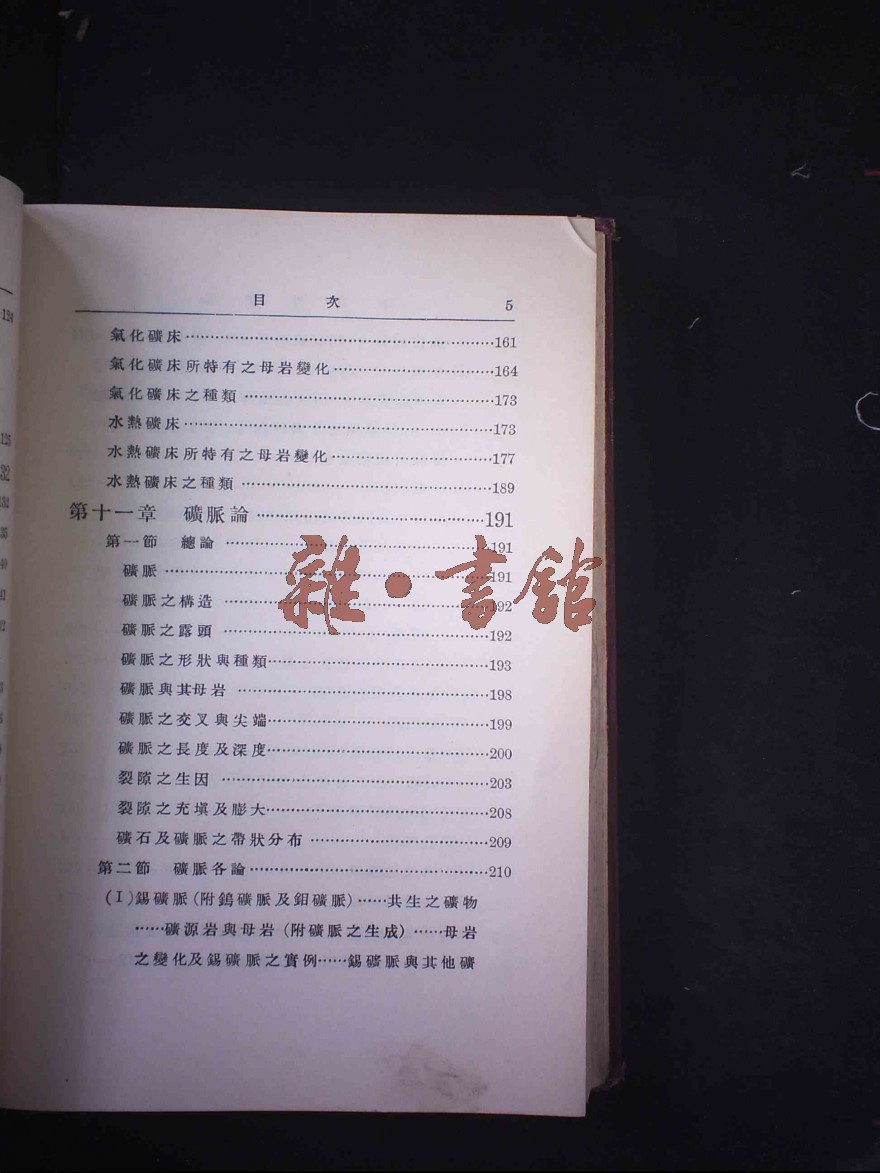 目 次 5
氣化礦床……161
氣化礦床所特有之母岩變化……164
氣化礦床之種類……173
水熱礦床……173
水熱礦床所特有之母岩變化……177
水熱礦床之種類……189
第十一章 礦脈論……191
第一節 總論……191
礦脈……191
礦脈之構造……192
礦脈之露頭……192
礦脈之形狀與種類……193
礦脈與其母岩……198
礦脈之交叉與尖端……199
礦脈之長度及深度……200
裂隙之生因……203
裂隙之充塡及膨大……208
礦石及礦脈之帶狀分布……209
第二節 礦脈各論……210
(I)錫礦脈(附鎢礦脈及鉬礦脈)……共生之礦物
……礦源岩與母岩(附礦脈之生成)……母岩
之變化及錫礦脈之實例……錫礦脈與其他礦
雜·書館
124
125
32